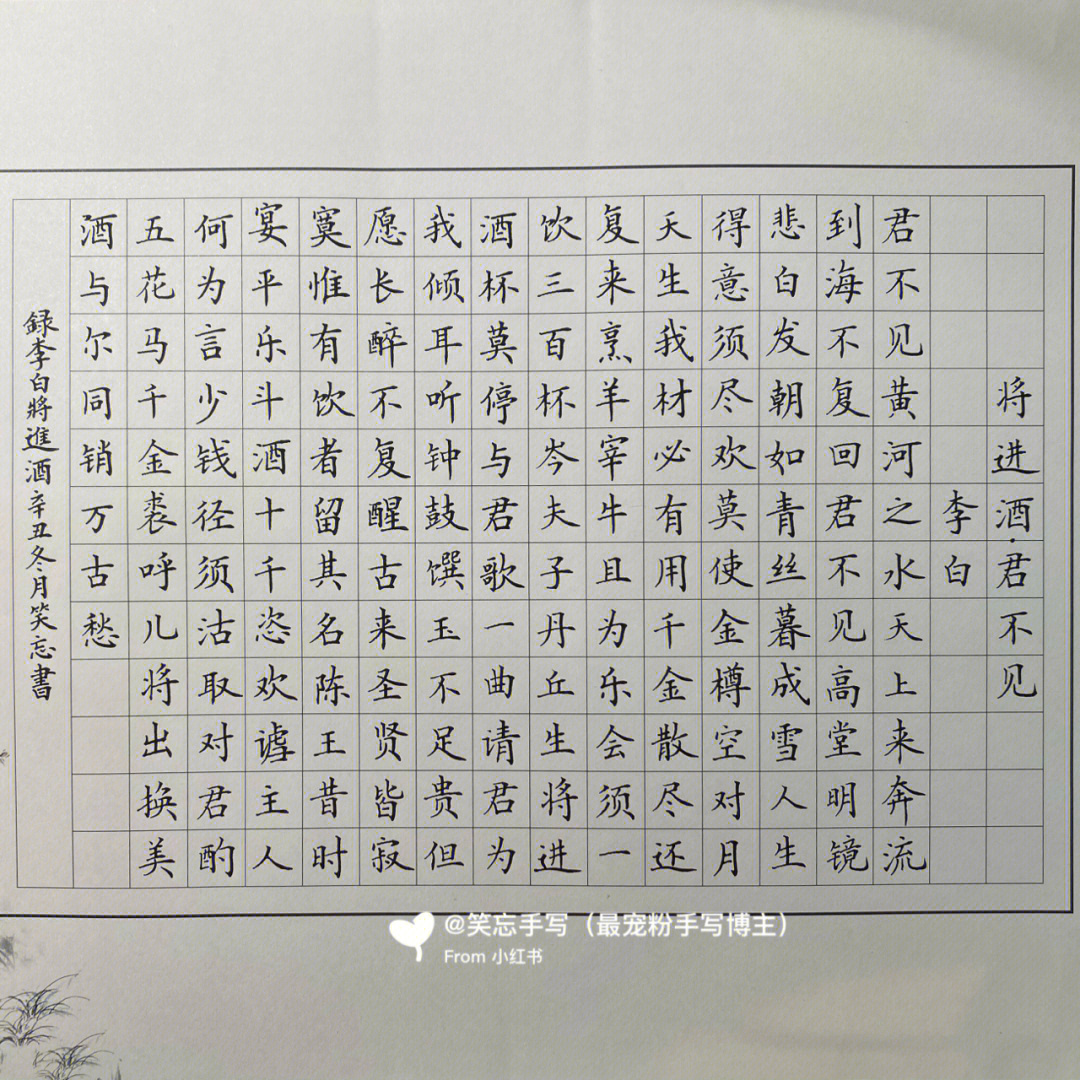 将进酒·君不见
李白
君不见黄河之水天上来奔流
到海不复回君不见高堂明镜
悲白发朝如青丝暮成雪人生
得意须尽欢莫使金樽空对月
天生我材必有用千金散尽还
复来烹羊宰牛且为乐会须一
饮三百杯岑夫子丹丘生将进
酒杯莫停与君歌一曲请君为
我倾耳听钟鼓馔玉不足贵但
愿长醉不复醒古来圣贤皆寂
寞惟有饮者留其名陈王昔时
宴平乐斗酒十千恣欢谑主人
何为言少钱径须沽取对君酌
五花马千金裘呼儿将出换美
酒与尔同销万古愁
録李白將進酒辛丑冬月笑忘書
@笑忘手写（最宠粉手写博主）
From 小红书